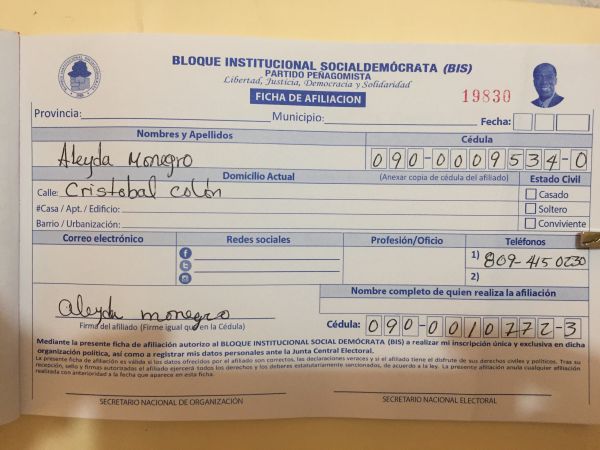 BLOQUE INSTITUCIONAL SOCIALDEMÓCRATA (BIS)
PARTIDO PEÑAGOMISTA
Libertad, Justicia, Democracia y Solidaridad
FICHA DE AFILIACION
19830
Provincia:
Municipio:
Fecha:
Nombres y Apellidos
Cédula
Aleyda Monegro
090-0009534-0
Domicilio Actual
(Anexar copia de cédula del afiliado)
Estado Civil
Calle: Cristobal Colón
Casado
#Casa / Apt. / Edificio:
Soltero
Barrio / Urbanización:
Conviviente
Correo electrónico
Redes sociales
Profesión/Oficio
Teléfonos
1) 809-415 0230
2)
Nombre completo de quien realiza la afiliación
aleyda monegro
Firma del afiliado (Firme igual que en la Cédula)
Cédula: 090-0010772-3
Mediante la presente ficha de afiliación autorizo al BLOQUE INSTITUCIONAL SOCIAL DEMÓCRATA (BIS) a realizar mi inscripción única y exclusiva en dicha
organización política, así como a registrar mis datos personales ante la Junta Central Electoral.
La presente ficha de afiliación es válida si los datos ofrecidos por el afiliado son correctos, las declaraciones veraces y si el afiliado tiene el disfrute de sus derechos civiles y políticos. Tras su
recepción, sello y firmas autorizadas el afiliado ejercerá todos los derechos y los deberes estatutariamente sancionados, de acuerdo a la ley. La presente afiliación anula cualquier afiliación
realizada con anterioridad a la fecha que aparece en esta ficha.
SECRETARIO NACIONAL DE ORGANIZACIÓN
SECRETARIO NACIONAL ELECTORAL